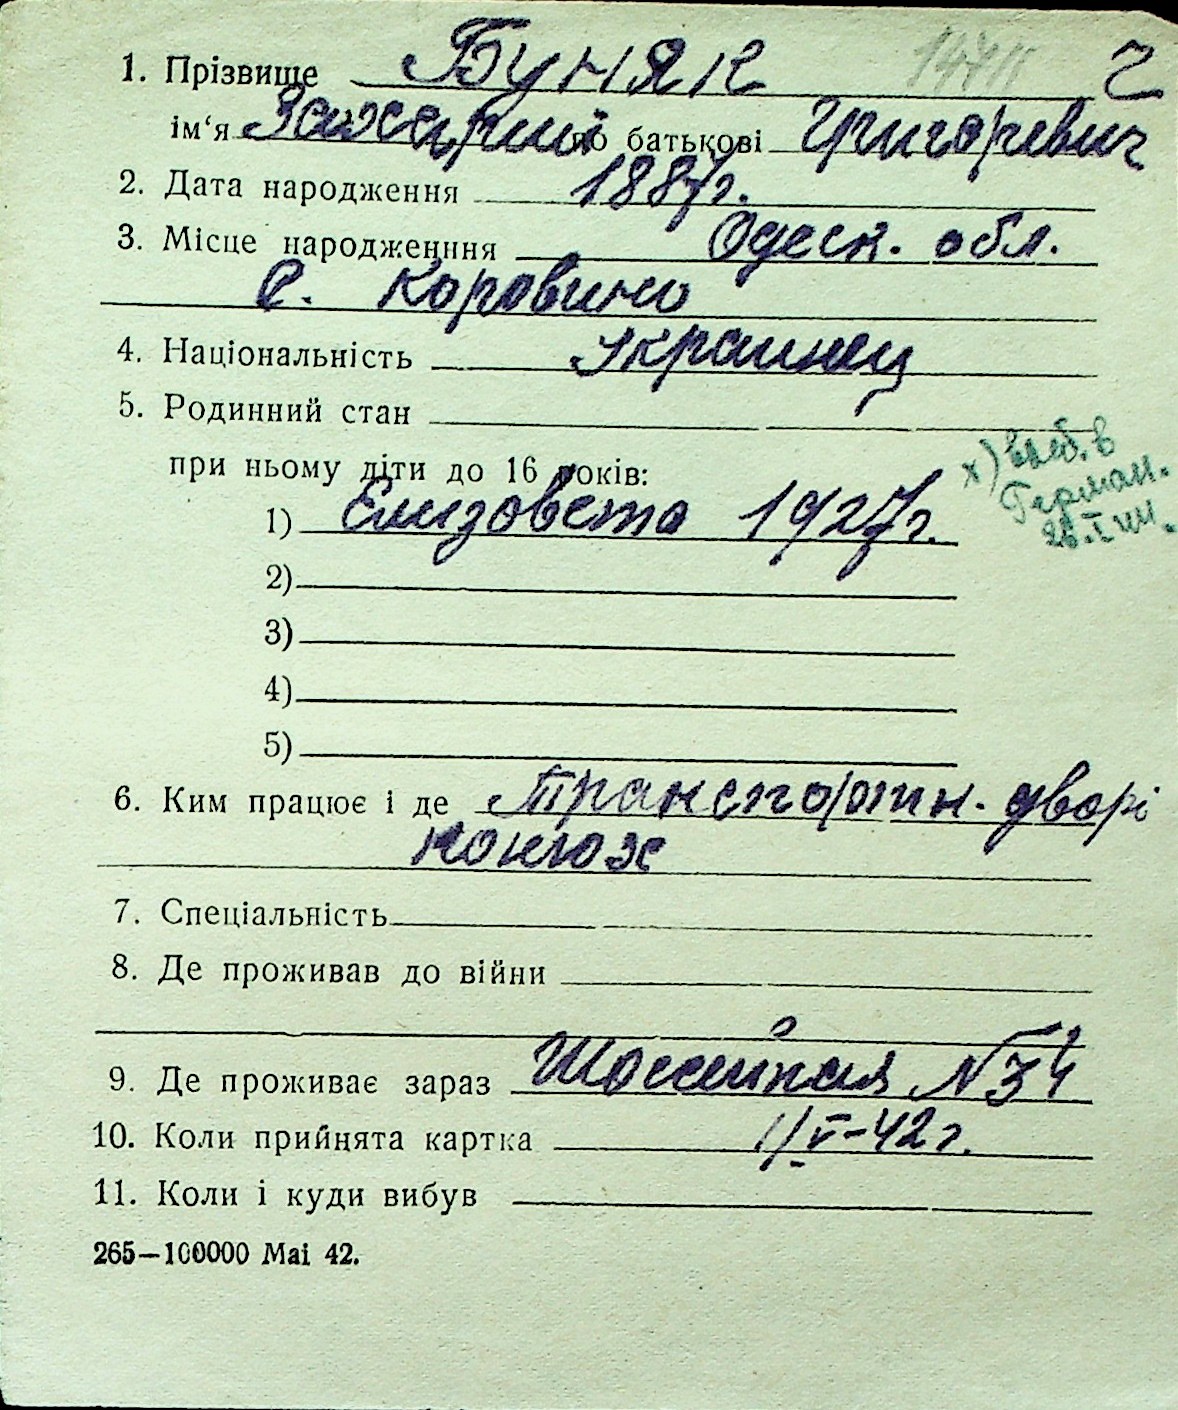 1. Прізвище Буняк 2
ім‘я Захарий по батькові Григоревич
2. Дата народження 1887г.
3. Місце народженння Одеск. обл.
с. Коровино
4. Національність Украинец
5. Родинний стан
при ньому діти до 16 років:
х) выб. в
Герман.
1) Елизовета 1927г.
2)
3)
4)
5)
6. Ким працює і де Транспортн. дворі
конюх
7. Спеціальність
8. Де проживав до війни
9. Де проживає зараз Шоссейная №34
10. Коли прийнята картка 1/V-42г.
11. Коли і куди вибув
265—100000 Mai 42.